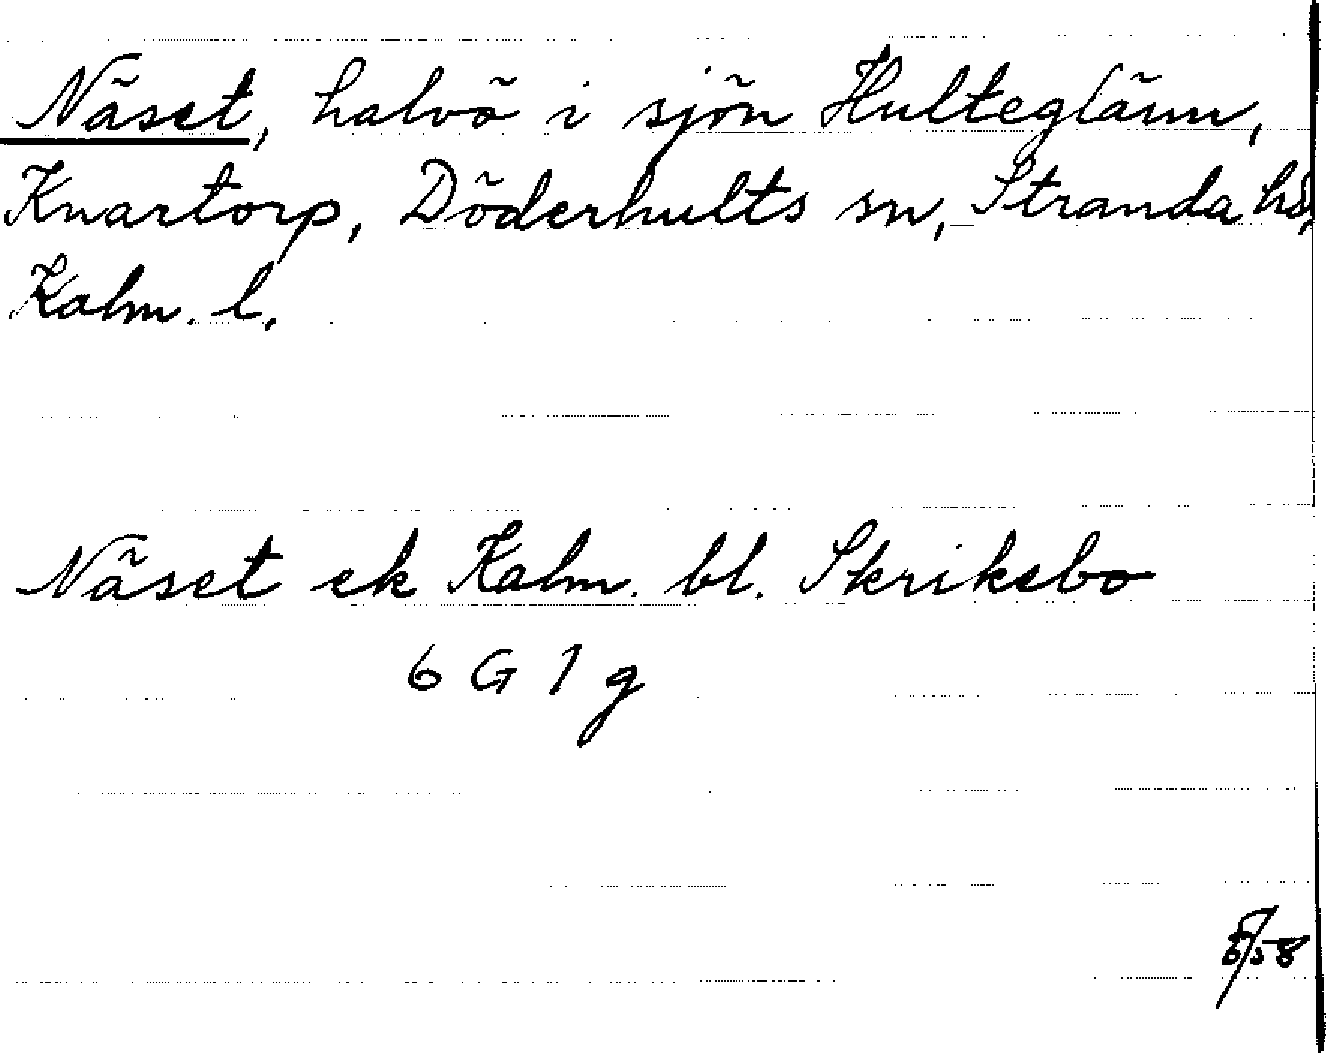 Näset, halvö i sjön Hulteglänn,
Knartorp, Döderhults sn, Stranda hd,
Kalm. l.
Näset ek Kalm. bl. Skriksbo
6 G 1 g